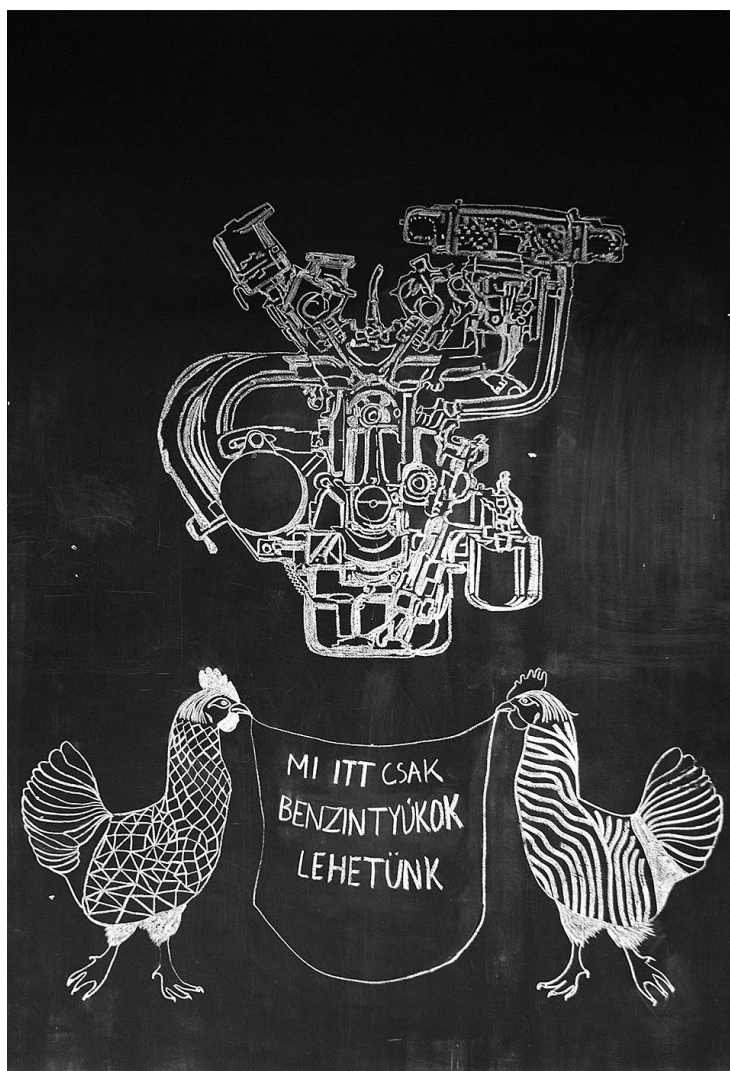 MI ITT CSAK
BENZINTYÚKOK
LEHETÜNK